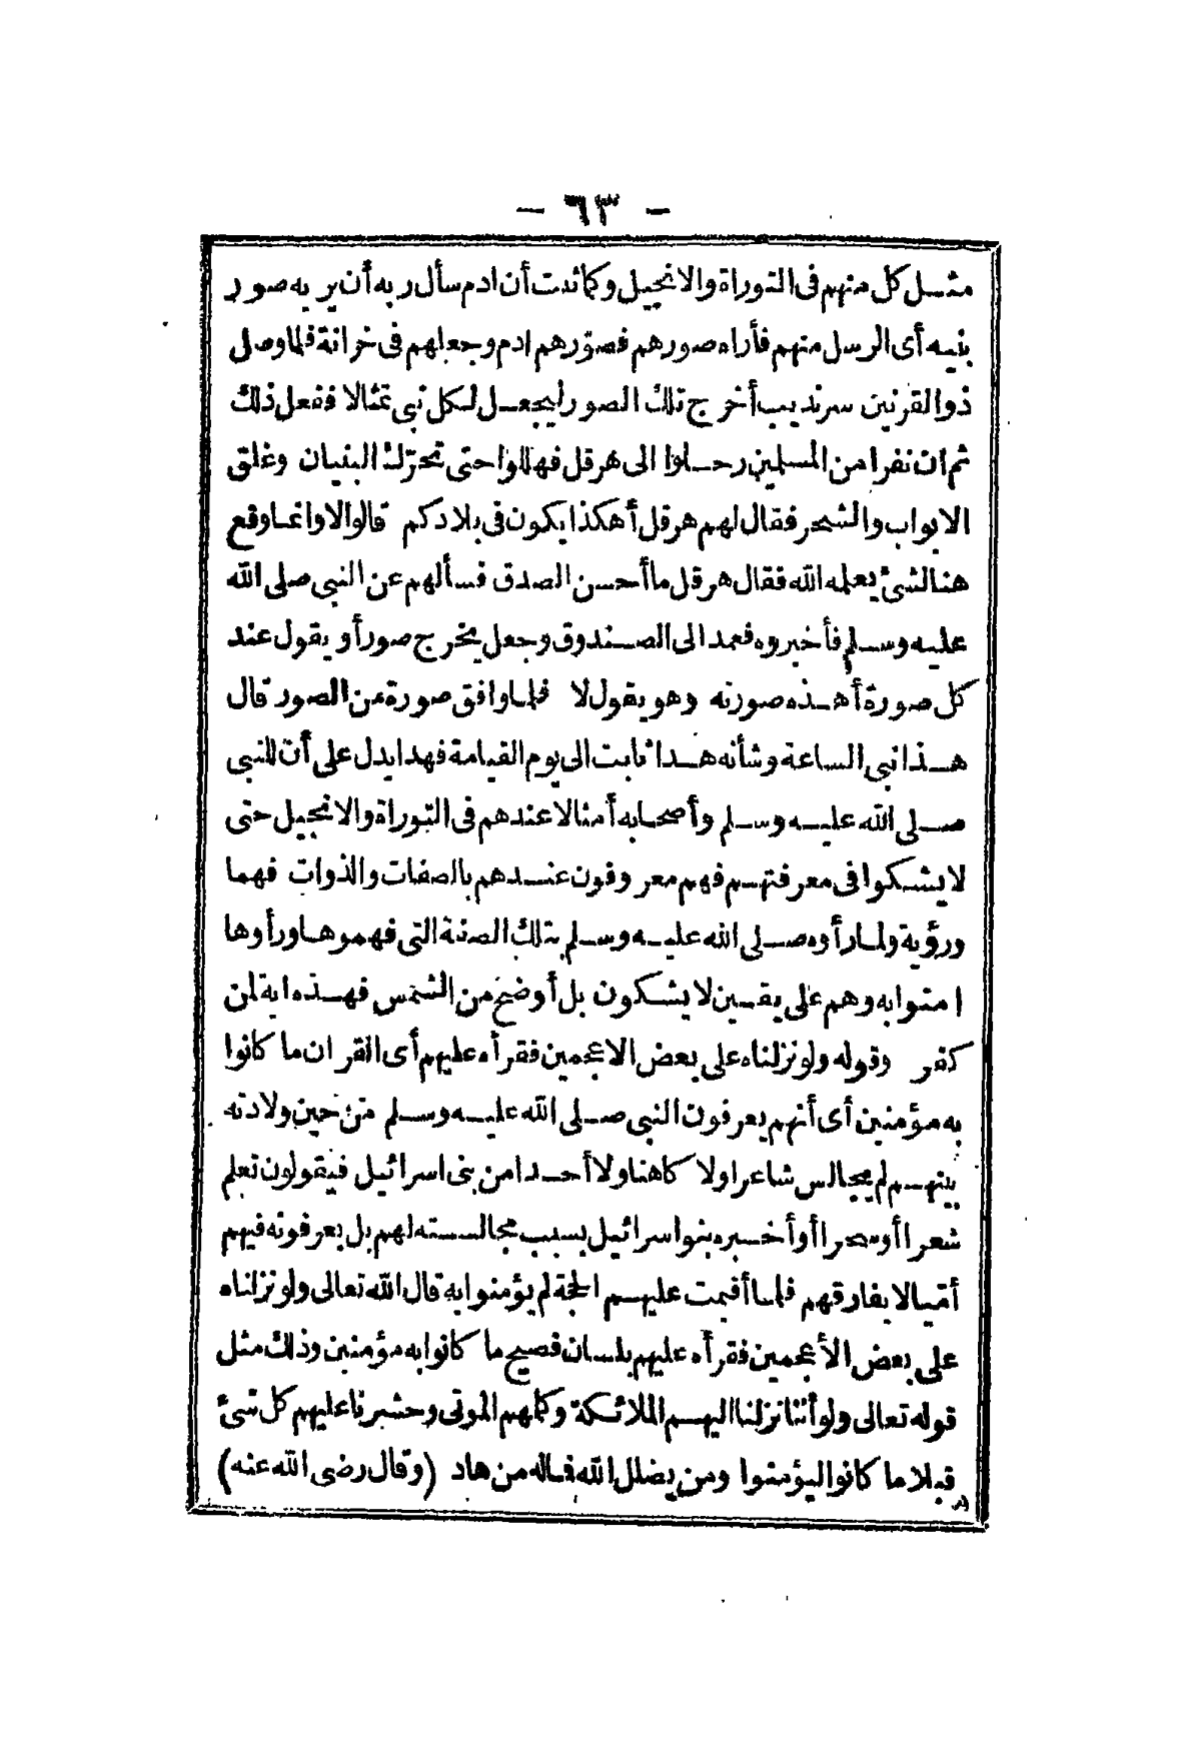 - ٦٣ -
مثل كل منهم فى التوراة والانجيل وكما ثبت أن ادم سأل ربه أن يريه صور
بنيه أى الرسل منهم فأراه صورهم فصوّرهم ادم وجعلهم فى خزانة فلما وصل
ذو القرنين سرنديب أخرج تلك الصور ليجعل لكل نبى تمثالا ففعل ذلك
ثم ان نفرا من المسلمين رحلوا الى هرقل فهللوا حتى تحرّك البنيان وغلق
الابواب والشجر فقال لهم هرقل أهكذا يكون فى بلادكم قالوا لا وانما وقع
هنا لشئ يعلمه الله فقال هرقل ما أحسن الصدق فسألهم عن النبى صلى الله
عليه وسلم فأخبروه فعمد الى الصندوق وجعل يخرج صورا ويقول عند
كل صورة أهذه صورته وهو يقول لا فلما وافق صورة من الصور قال
هذا نبى الساعة وشأنه هذا ثابت الى يوم القيامة فهدا يدل على أن للنبى
صلى الله عليه وسلم وأصحابه أمثالا عندهم فى التوراة والانجيل حتى
لا يشكوا فى معرفتهم فهم معروفون عندهم بالصفات والذوات فهما
ورؤية ولما رأوه صلى الله عليه وسلم بتلك الصفة التى فهموها ورأوها
امنوا به وهم على يقين لا يشكون بل أوضح من الشمس فهذه اية لمن
كفر وقوله ولو نزلناه على بعض الاعجمين فقرأه عليهم أى القران ما كانوا
به مؤمنين أى أنهم يعرفون النبى صلى الله عليه وسلم من حين ولادته
بينهم لم يجالس شاعرا ولا كاهنا ولا أحدا من بنى اسرائيل فيقولون تعلم
شعرا أو سحرا أو أخبره بنو اسرائيل بسبب مجالسته لهم بل يعرفونه فيهم
أميا لا يفارقهم فلما أقيمت عليهم الحجة لم يؤمنوا به قال الله تعالى ولو نزلناه
على بعض الأعجمين فقرأه عليهم بلسان فصيح ما كانوا به مؤمنين وذلك مثل
قوله تعالى ولو أننا نزلنا اليهم الملائكة وكلمهم الموتى وحشرنا عليهم كل شئ
قبلا ما كانوا ليؤمنوا ومن يضلل الله فماله من هاد (وقال رضى الله عنه)